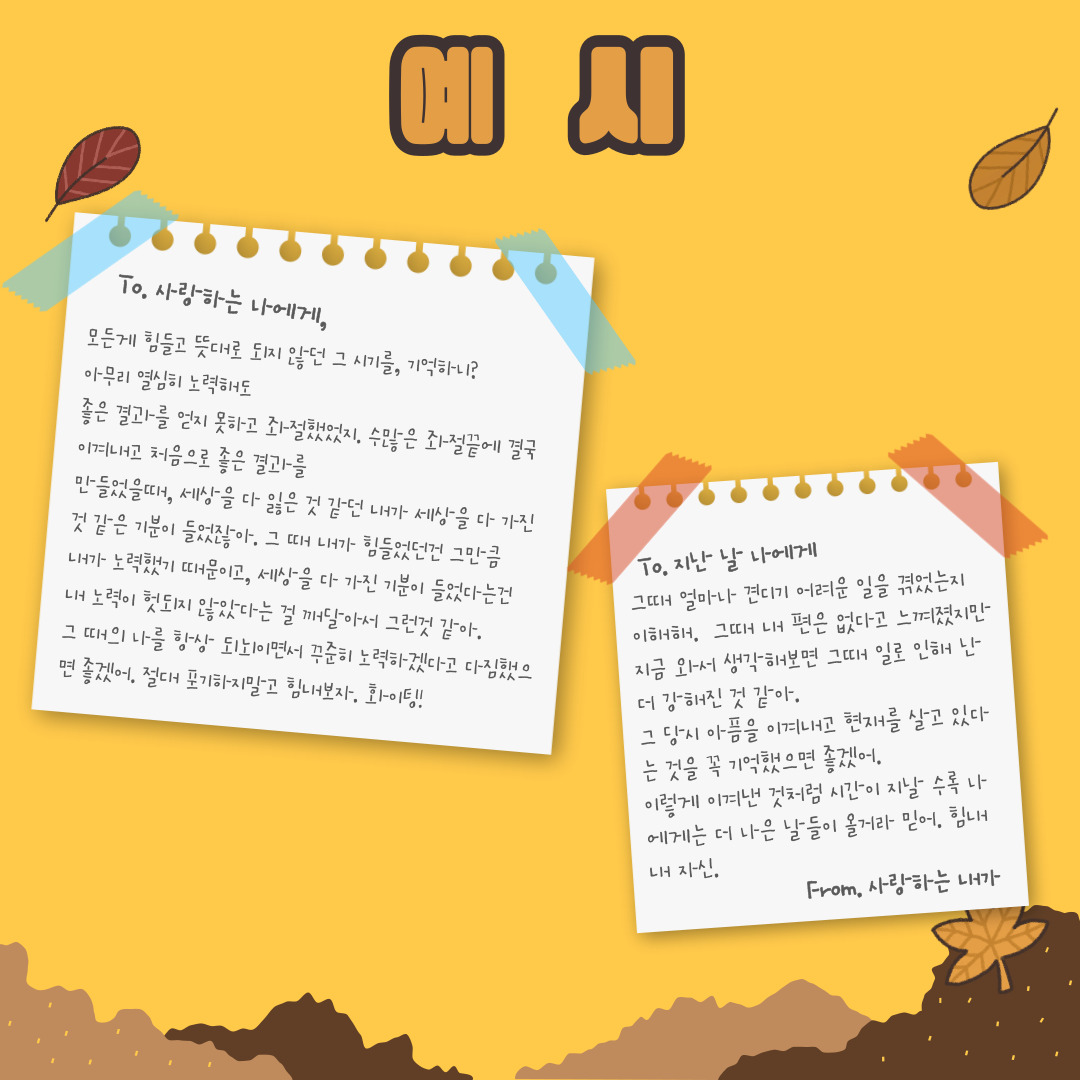 예 시
To. 사랑하는 나에게,
모든게 힘들고 뜻대로 되지 않던 그 시기를, 기억하니?
아무리 열심히 노력해도
좋은 결과를 얻지 못하고 좌절했었지. 수많은 좌절끝에 결국
이겨내고 처음으로 좋은 결과를
만들었을때, 세상을 다 잃은 것 같던 내가 세상을 다 가진
것 같은 기분이 들었잖아. 그 때 내가 힘들었던건 그만큼
내가 노력했기 때문이고, 세상을 다 가진 기분이 들었다는건
내 노력이 헛되지 않았다는 걸 깨달아서 그런것 같아.
그 때의 나를 항상 되뇌이면서 꾸준히 노력하겠다고 다짐했으
면 좋겠어. 절대 포기하지말고 힘내보자. 화이팅!!
To. 지난 날 나에게
그때 얼마나 견디기 어려운 일을 겪었는지
이해해. 그때 내 편은 없다고 느껴졌지만
지금 와서 생각해보면 그때 일로 인해 난
더 강해진 것 같아.
그 당시 아픔을 이겨내고 현재를 살고 있다
는 것을 꼭 기억했으면 좋겠어.
이렇게 이겨낸 것처럼 시간이 지날 수록 나
에게는 더 나은 날들이 올거라 믿어. 힘내
내 자신.
From. 사랑하는 내가